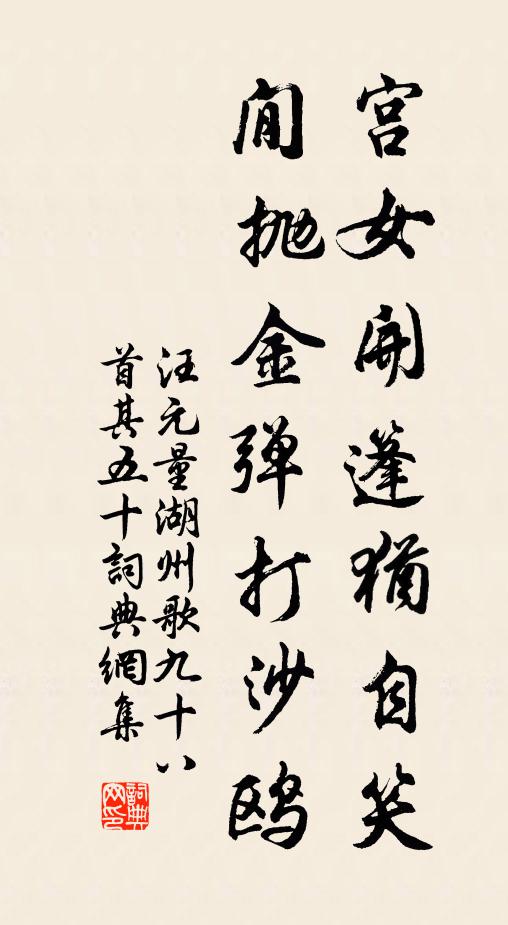 宫女開篷猶自笑
閒抛金弹打沙鸥
汪元量湖州歌九十八
首其五十詞典網集
詞典网印